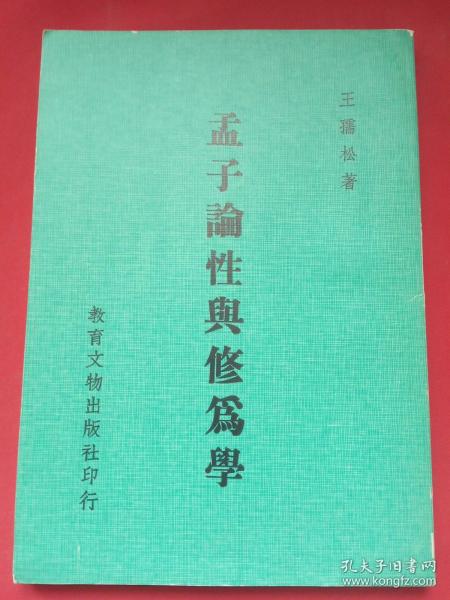 王孺松著
孟子論性與修爲學
教育文物出版社印行
孔夫子旧书网
www.kongfz.com